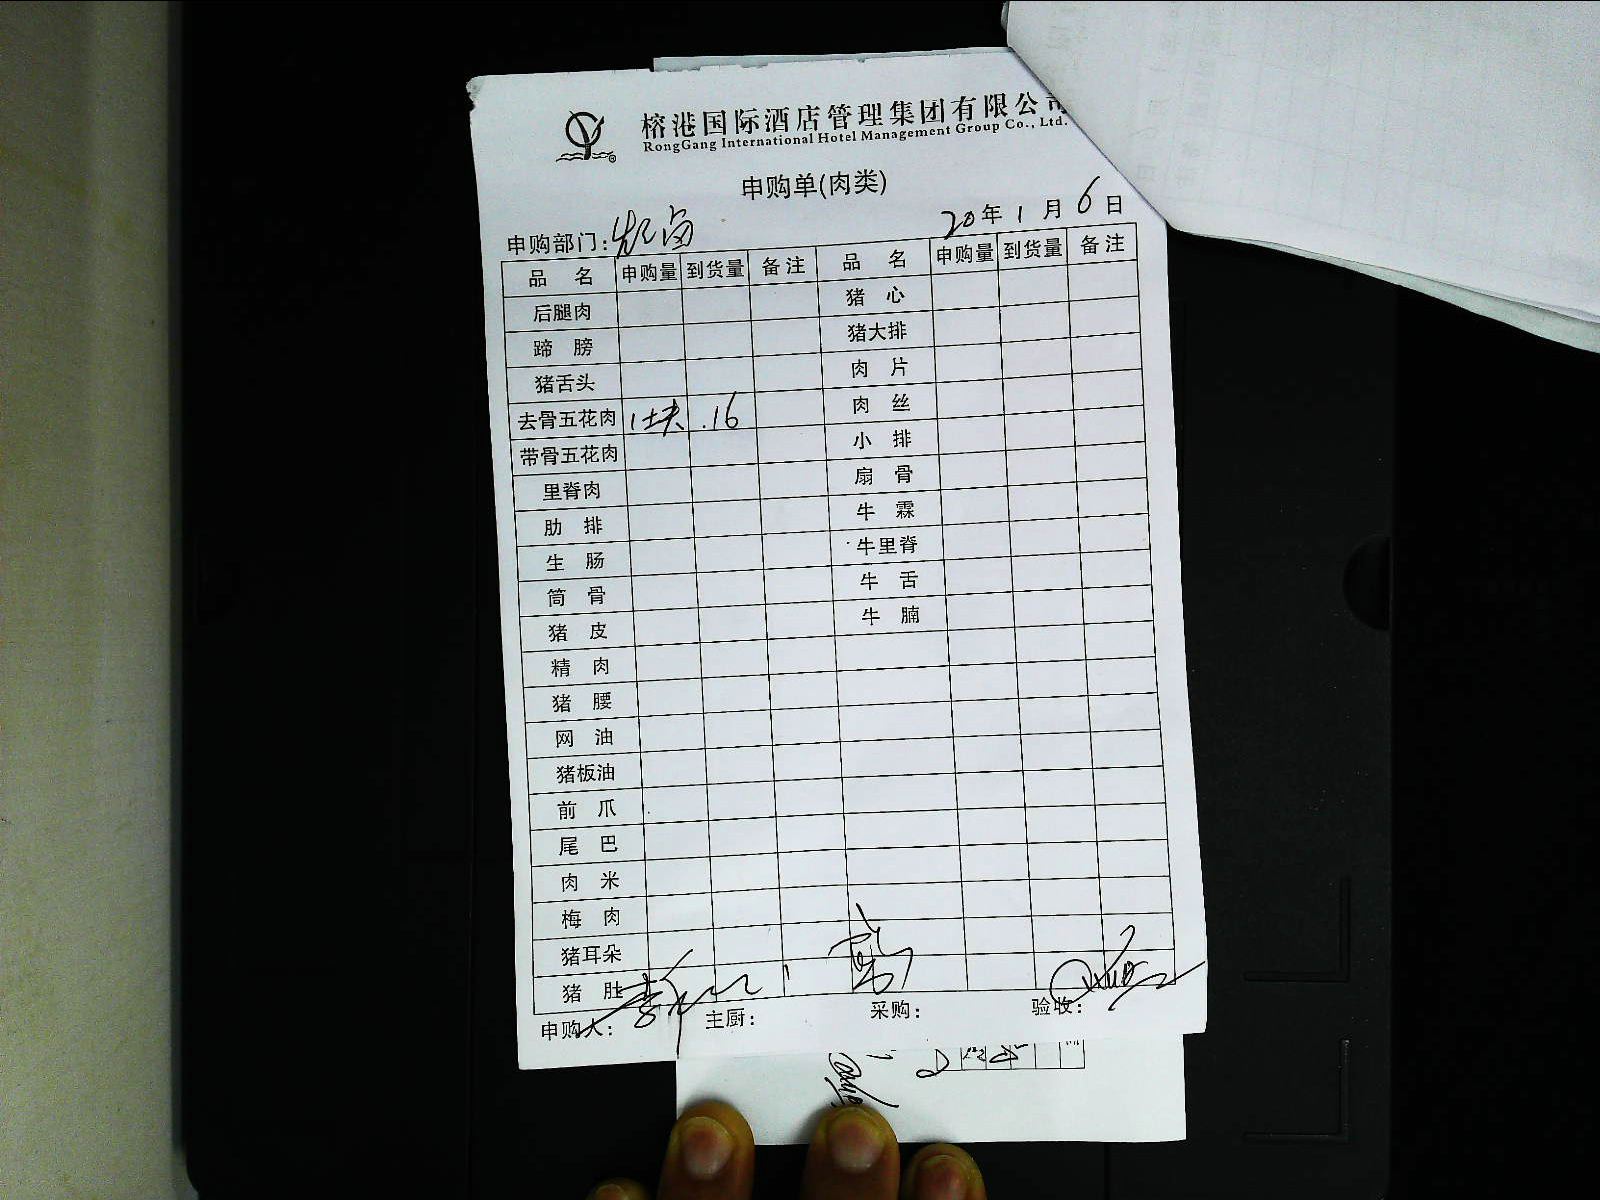 榕港国际酒店管理集团有限公司
RongGang International Hotel Management Group Co., Ltd.
申购单(肉类)
申购部门:
20年1月6日
品名 申购量 到货量 备注 品名 申购量 到货量 备注
后腿肉 猪心
蹄膀 猪大排
猪舌头 肉片
去骨五花肉 1块 .16 肉丝
带骨五花肉 小排
里脊肉 扇骨
肋排 牛霖
生肠 牛里脊
筒骨 牛舌
猪皮 牛腩
精肉
猪腰
网油
猪板油
前爪
尾巴
肉米
梅肉
猪耳朵
猪肚
申购人: 主厨: 采购: 验收: